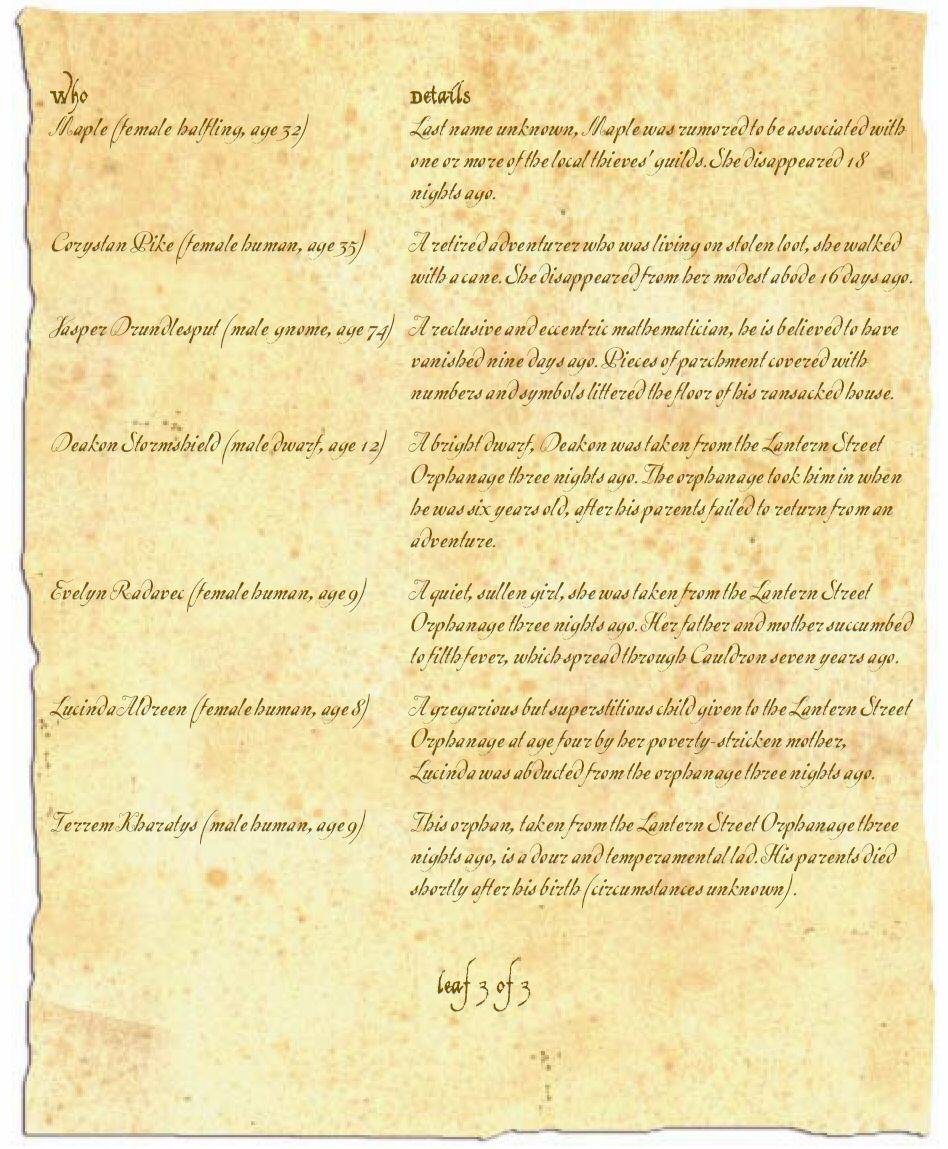 Who Details
Maple (female halfling, age 32) Last name unknown, Maple was rumored to be associated with
one or more of the local thieves' guilds. She disappeared 18
nights ago.
Corystan Pike (female human, age 35) A retired adventurer who was living on stolen loot, she walked
with a cane. She disappeared from her modest abode 16 days ago.
Jasper Drundlesput (male gnome, age 74) A reclusive and eccentric mathematician, he is believed to have
vanished nine days ago. Pieces of parchment covered with
numbers and symbols littered the floor of his ransacked house.
Deakon Stormshield (male dwarf, age 12) A bright dwarf, Deakon was taken from the Lantern Street
Orphanage three nights ago. The orphanage took him in when
he was six years old, after his parents failed to return from an
adventure.
Evelyn Radavec (female human, age 9) A quiet, sullen girl, she was taken from the Lantern Street
Orphanage three nights ago. Her father and mother succumbed
to filth fever, which spread through Cauldron seven years ago.
Lucinda Aldreen (female human, age 8) A gregarious but superstitious child given to the Lantern Street
Orphanage at age four by her poverty-stricken mother,
Lucinda was abducted from the orphanage three nights ago.
Terrem Kharatys (male human, age 9) This orphan, taken from the Lantern Street Orphanage three
nights ago, is a dour and temperamental lad. His parents died
shortly after his birth (circumstances unknown).
leaf 3 of 3